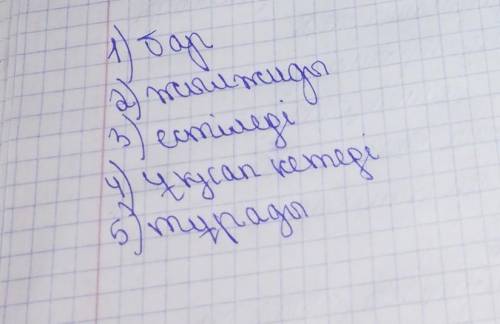 1) бар
2) жылжиды
3) естіледі
4) ұқсап кетеді
5) тұрады